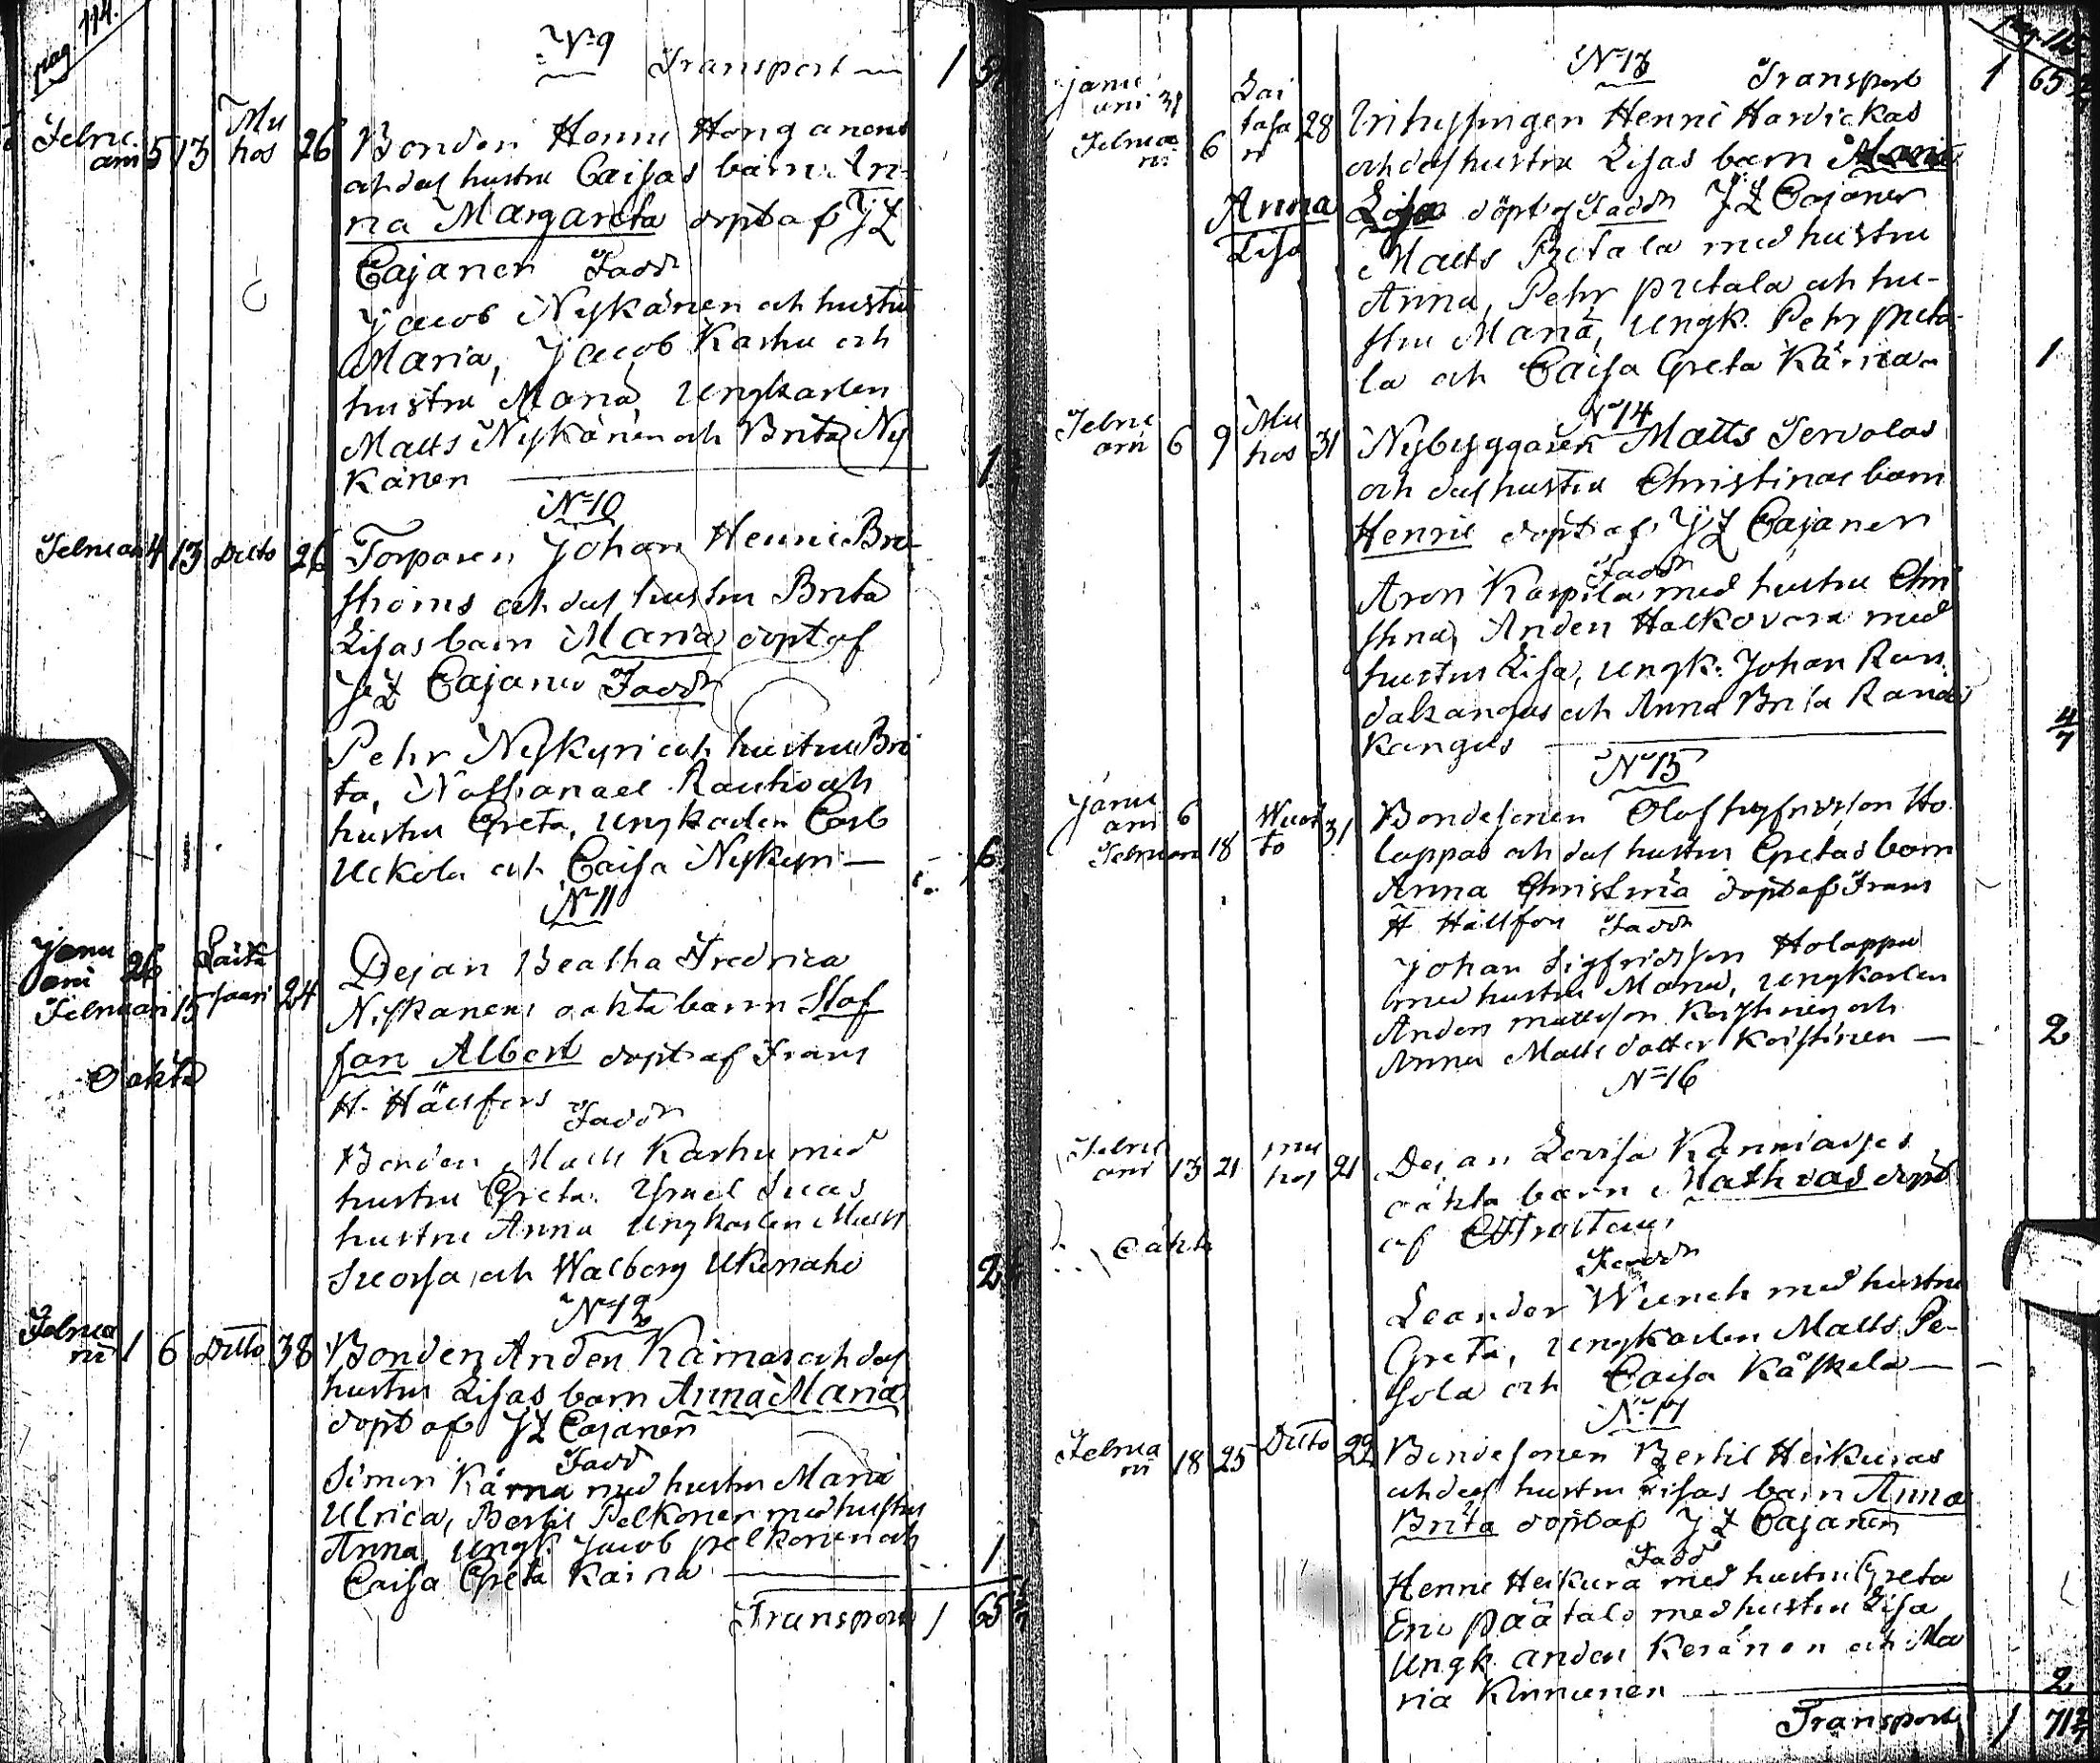 pag. 114.
N:9
Transport — 1
Febru
arii 5 13 Mu
hos 26
Bonden Henric Honganens
och dess hustru Caisas barn An-
na Margareta döpt af J Z
Cajanen Fadd
Jacob Nyskänen och hustru
Maria, Jacob Karhu och
hustru Maria, Ungkarlen
Matts Nyskänen och Brita Nys
känen 1
N=10
Februari 4 13 Ditto 26
Torparen Johan Henric Bro-
ströms och dess hustru Brita
Lisas barn Maria döpt af
J Z Cajanus Fadd
Pehr Nyskyri och hustru Bri
ta, Nathanael Rautio och
hustru Greta, Ungkarlen Carl
Uckola och Caisa Nyskyri — 6
N:11
Janu
arii 26
Februari 15
Laita
saari 24
Oäkta
Pejan Beatha Fredrica
Niskanens oäkta barn Staf
fan Albert döpt af Frans
H. Hällfors Fadd
Bonden Matts Karhu med
hustru Greta. Ysrael Sucas
hustru Anna Ungkarlen Matts
och Walborg Ukonaho 2
N:12
Februa
rii 1 6 Ditto 38
Bonden Anders Kärnas och dess
hustru Lisas barn Anna Maria
döpt af J Z Cajanen
Fadd
Simon Kärna med hustru Maria
Ulrica, Bertil Pelkonen med hustru
Anna, Ungk. Jacob Pelkonen och
Caisa Greta Kärna 1
Transport 1 65
pag. 115
N:13
Transport 1 65
Janu
arii 31
Februa
rii 6
Lai
tasa
ri 28
Inhysingen Henric Hardickas
och dess hustru Lisas barn Maria
Anna
Lisa
Lisa döpt af Fadd J Z Cajanen
Matts Pietala med hustru
Anna, Pehr Pietala och hu-
stru Maria, Ungk. Pehr Pieta-
la och Caisa Greta Kärna 1
N:14
Febru
arii 6 9 Mu
hos 31
Nybyggaren Matts Servolas
och dess hustru Christinas barn
Henric döpt af J Z Cajanen
Fadd
Aron Karpila med hustru Chri
stina, Anders Halkovara med
hustru Lisa, Ungk. Johan Ran
dakangas och Anna Brita Randa
kangas 4/7
N:15
Janu
arii 6
Februari 18
Wuot
to 31
Bondesonen Olof Sigfridsson Ho-
lappas och dess hustru Gretas barn
Anna Christina döpt af Frans
H Hällfors Fadd
Johan Sigfridsson Holappa
med hustru Maria, Ungkarlen
Anders Mattsson Koistinen och
Anna Mattsdotter Koistinen — 2
N=16
Febru
arii 13 21 Mu
hos 21
Oäkta
Pejan Lovisa Kanniaises
oäkta barn Mathias döpt
af
Fadd
Leander Wunch med hustru
Greta, Ungkarlen Matts Pe-
sola och Caisa Käskela —
N:17
Februa
rii 18 25 Ditto 22
Bondesonen Bertil Heikuras
och dess hustru Lisas barn Anna
Brita döpt af J Z Cajanen
Fadd
Henric Heikura med hustru Greta
Eric Päätalo med hustru Lisa
Ungk Anders Keränen och Ma
ria Kinnunen 2
Transport 1 71